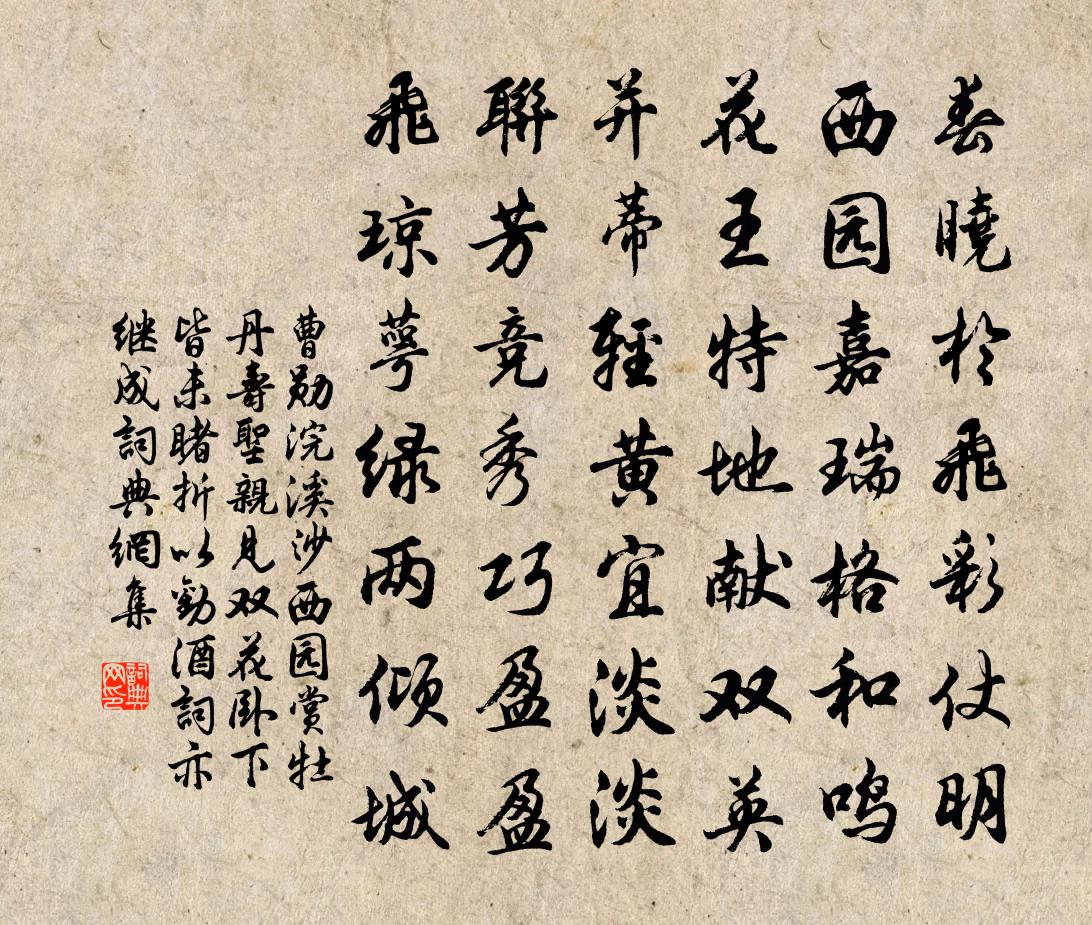 春曉於飛彩仗明
西园嘉瑞格和鸣
花王特地献双英
并蒂輕黄宜淡淡
聯芳竞秀巧盈盈
飛琼萼绿两倾城
曹勋浣溪沙西园赏牡
丹壽聖親見双花卧下
皆未睹折以勸酒詞亦
继成詞典網集
詞典网印